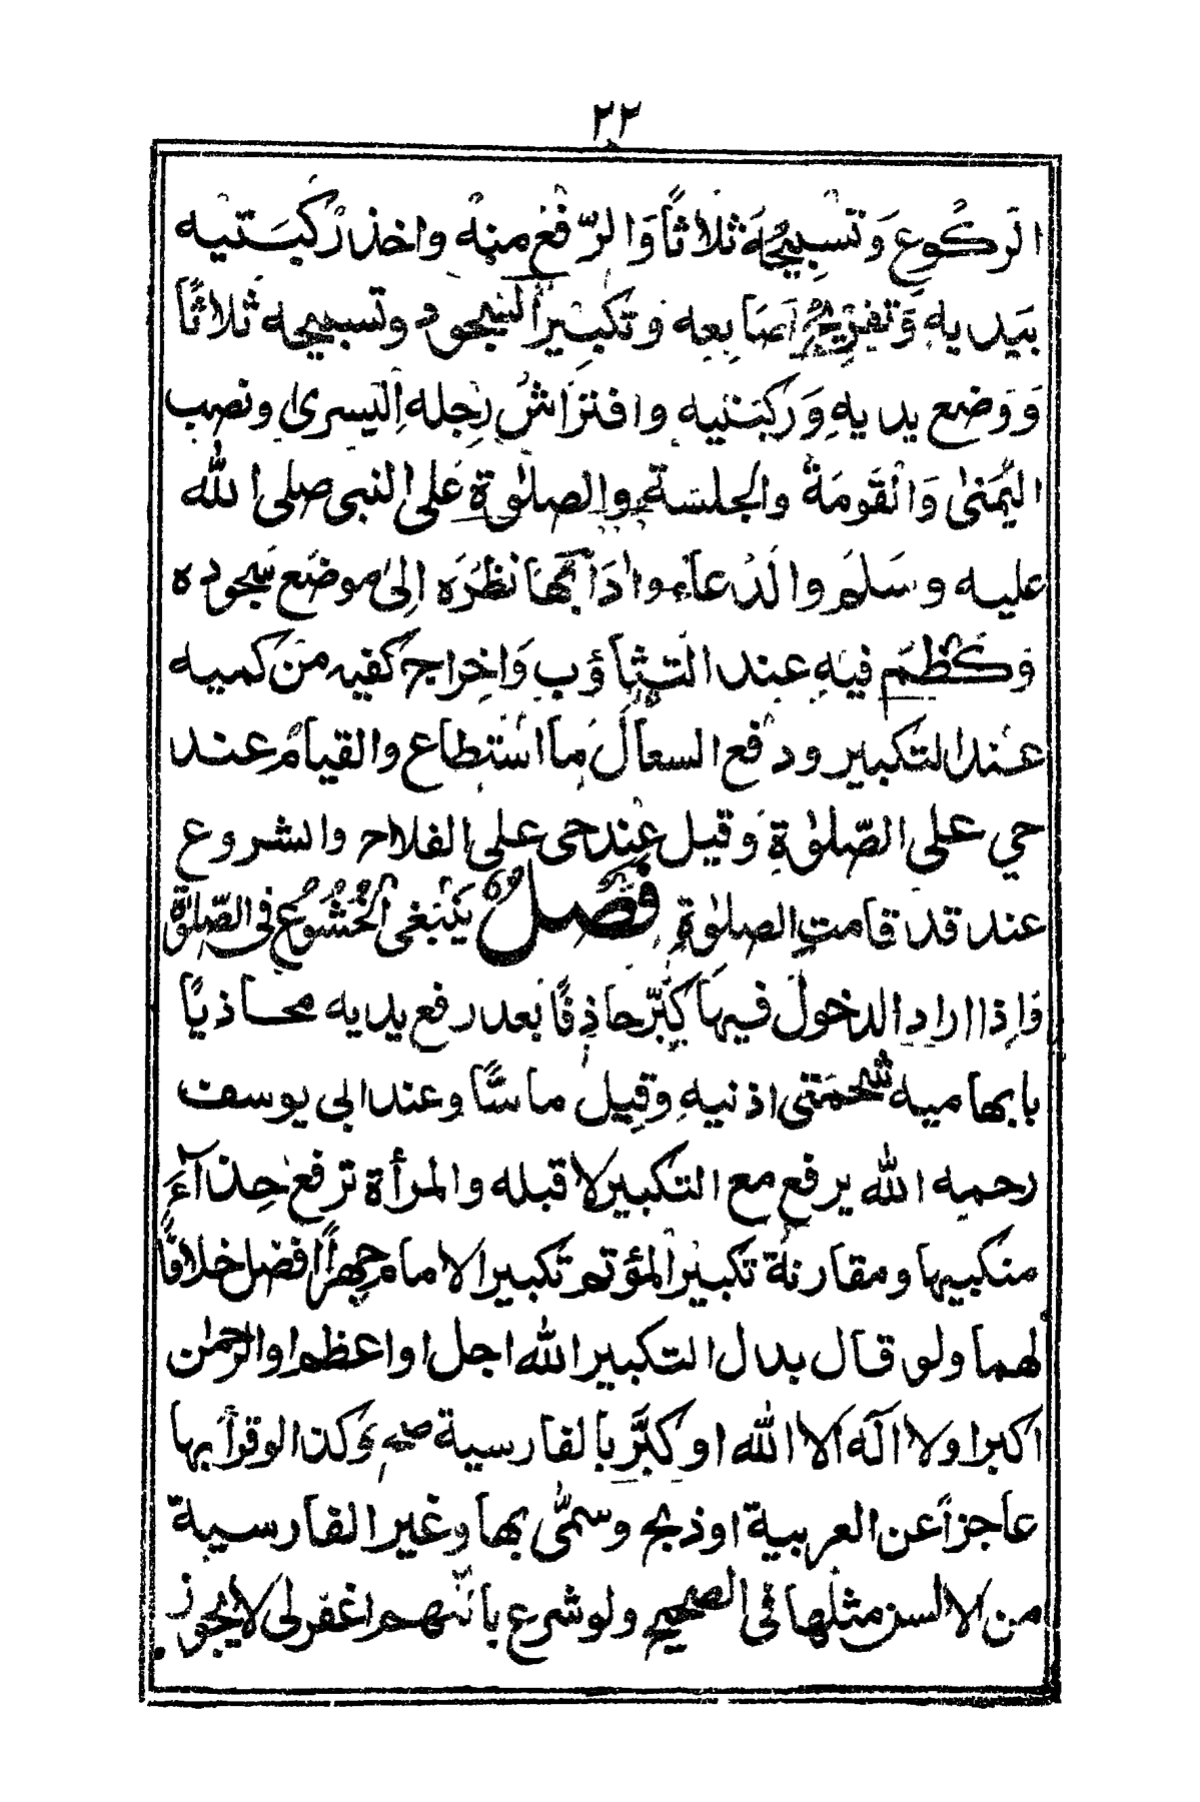 ٢٢
الرَكُوع وَتسْبِيحُهُ ثلاثاً وَالرّفْع منهْ واخذ رُكبَتيه
بيَديهِ وَتفرِيجُ اَصَابعِه وَتكبِيرُ السجود وتسبيحه ثلاثاً
وَوَضع يديهِ وَركبتيه وافتراشُ رِجله اليسرىٰ ونصب
اليُمنىٰ وَالْقَومَةُ والجلسَة والصلوٰة علَى النبى صلى الله
عليه وسَلم والدُعاء وادَابُها نظرُه اِلىٰ موضع سجوده
وَكظم فيهِ عند التثاؤب وَاخراج كفيه من كميه
عند التكبير ودفع السعالَ ما استطاع والقيامُ عند
حي على الصّلوٰةِ وقيل عند حى على الفلاح والشروع
عند قد قامت الصلوٰة فصْلٌ يَنْبَغى الْخُشُوعُ فى الصّلوٰة
وَاِذا اراد الدخولَ فيهَا كبّر حاذِفًا بَعد رفع يديه محاذيًا
بابهاميه شحمَتى اذنيهِ وقيل ماسّاً وعند ابى يوسف
رحمه الله يرفع مع التكبير لا قبله والمرأة ترفع حِذآءَ
منكبيها ومقارنة تكبير المؤتم تكبير الامام جهراً افضل خلافًا
لهما ولو قال بدل التكبير الله اجل او اعظم او الرحمٰن
اكبر او لا الٓه الا الله او كبَّر بالفارسية صح وكذا لو قرأ بها
عاجزاً عن العربية او ذبح وسمّى بها وغير الفارسية
من الالسن مثلها فى الصحيح ولو شرع باللّهم اغفرلى لا يجوز